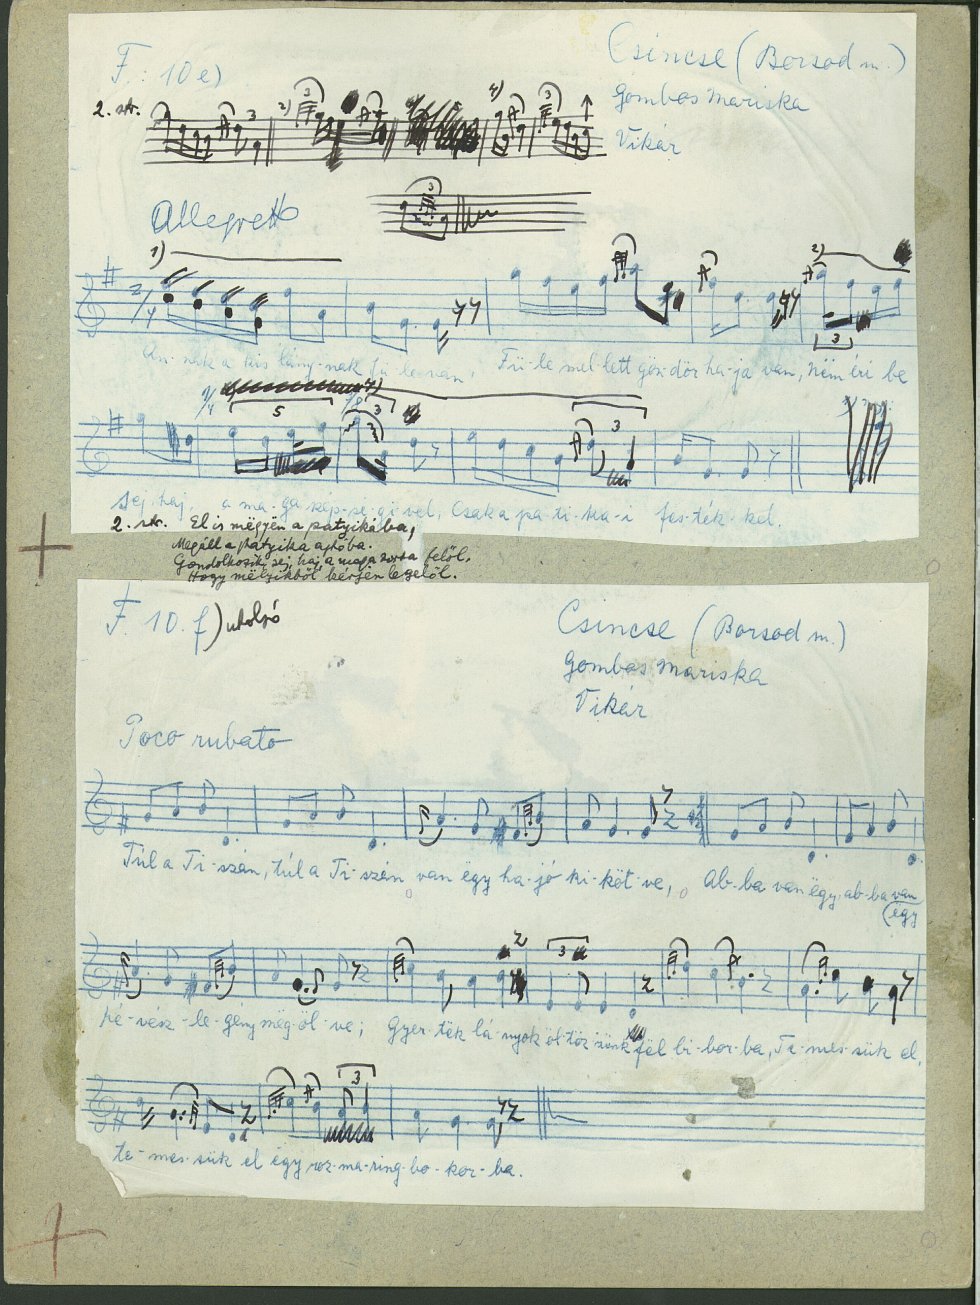 F. : 10 e)
Csincse (Borsod m.)
Gombos Mariska
Vikár
2. str.
2)
3
4)
3
3
Allegretto
1)
2)
2/4
3
An-nak a kis lány-nak fü-le van, Fü-le mel-lett göndör ha-ja van, Nem éri be
5
3
3
sej, haj, a ma-ga szép-sé-gi-vel, Csak a pa-ti-ka-i fes-ték-kel.
2. str. El is mëgyën a patyikába,
Megáll a patyika ajtóba.
Gondolkozik, sej, haj, a maga sorsa felől,
Hogy mëlyikből kérjën legelől.
F. 10. f) utolsó
Csincse (Borsod m.)
Gombos Mariska
Vikár
Poco rubato
Túl a Ti-szán, túl a Ti-szán van ëgy ha-jó ki-köt-ve, Ab-ba van ëgy, ab-ba van
(ëgy
3
re-vész-le-gény mëg-öl-ve; Gyer-tëk lá-nyok öl-töz-zünk fël bi-bor-ba, Te-mes-sük el,
3
te-mes-sük el ëgy roz-ma-ring-bo-kor-ba.